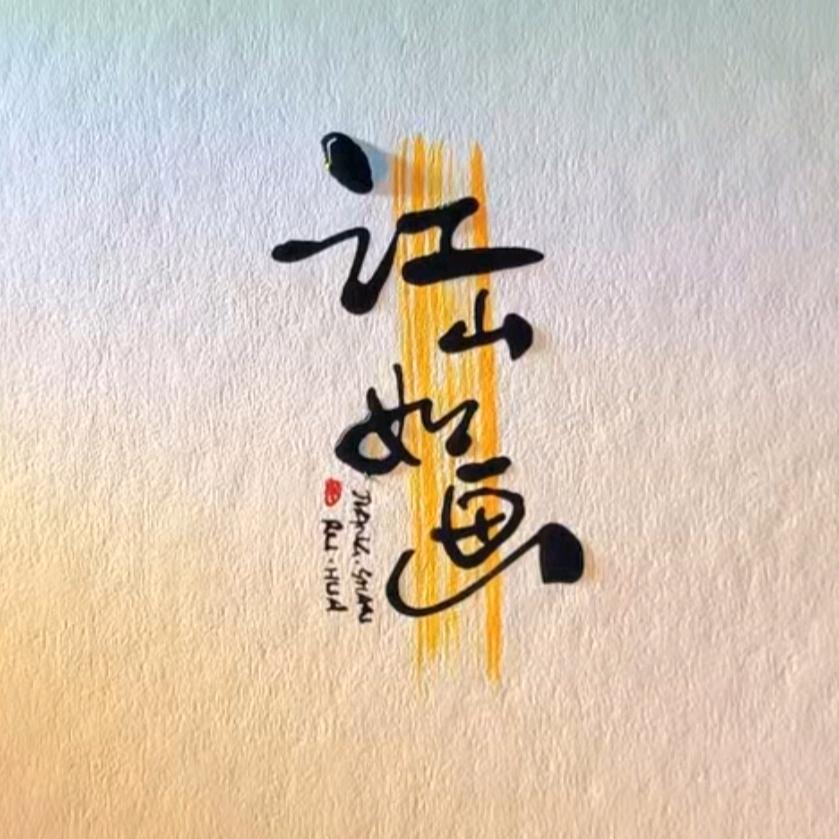 江山如画
JIANG.SHAN
RU.HUA